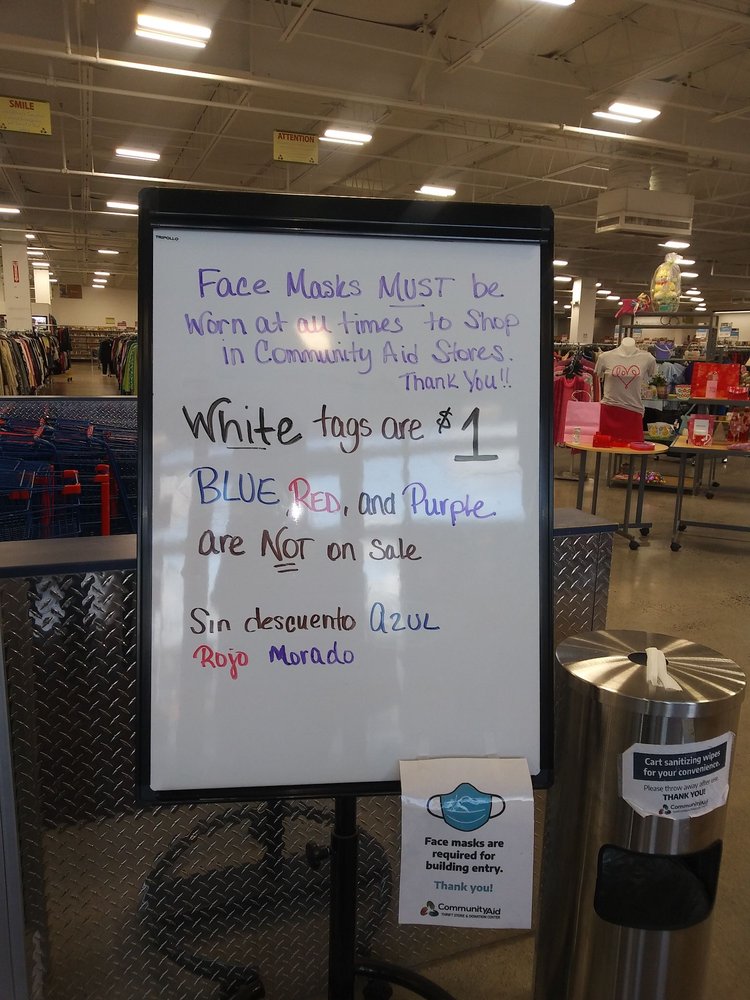 SMILE
ATTENTION
TRIPOLLO
Face Masks MUST be
Worn at all times to Shop
in Community Aid Stores.
Thank You!!
White tags are $1
BLUE, RED, and Purple
are NOT on sale
Sin descuento AZUL
Rojo Morado
Face masks are
required for
building entry.
Thank you!
CommunityAid
THRIFT STORE & DONATION CENTER
Cart sanitizing wipes
for your convenience.
Please throw away after use.
THANK YOU!
CommunityAid
love